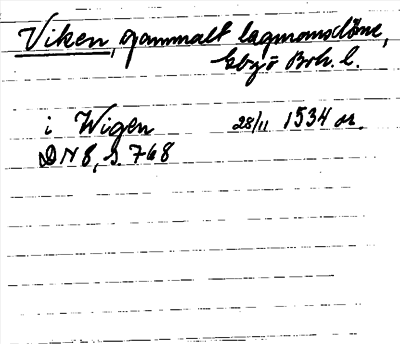 Viken, gammalt lagmansdöme,
Boh. l.
i Wigen 28/11 1534 or.
DN 8, s. 768